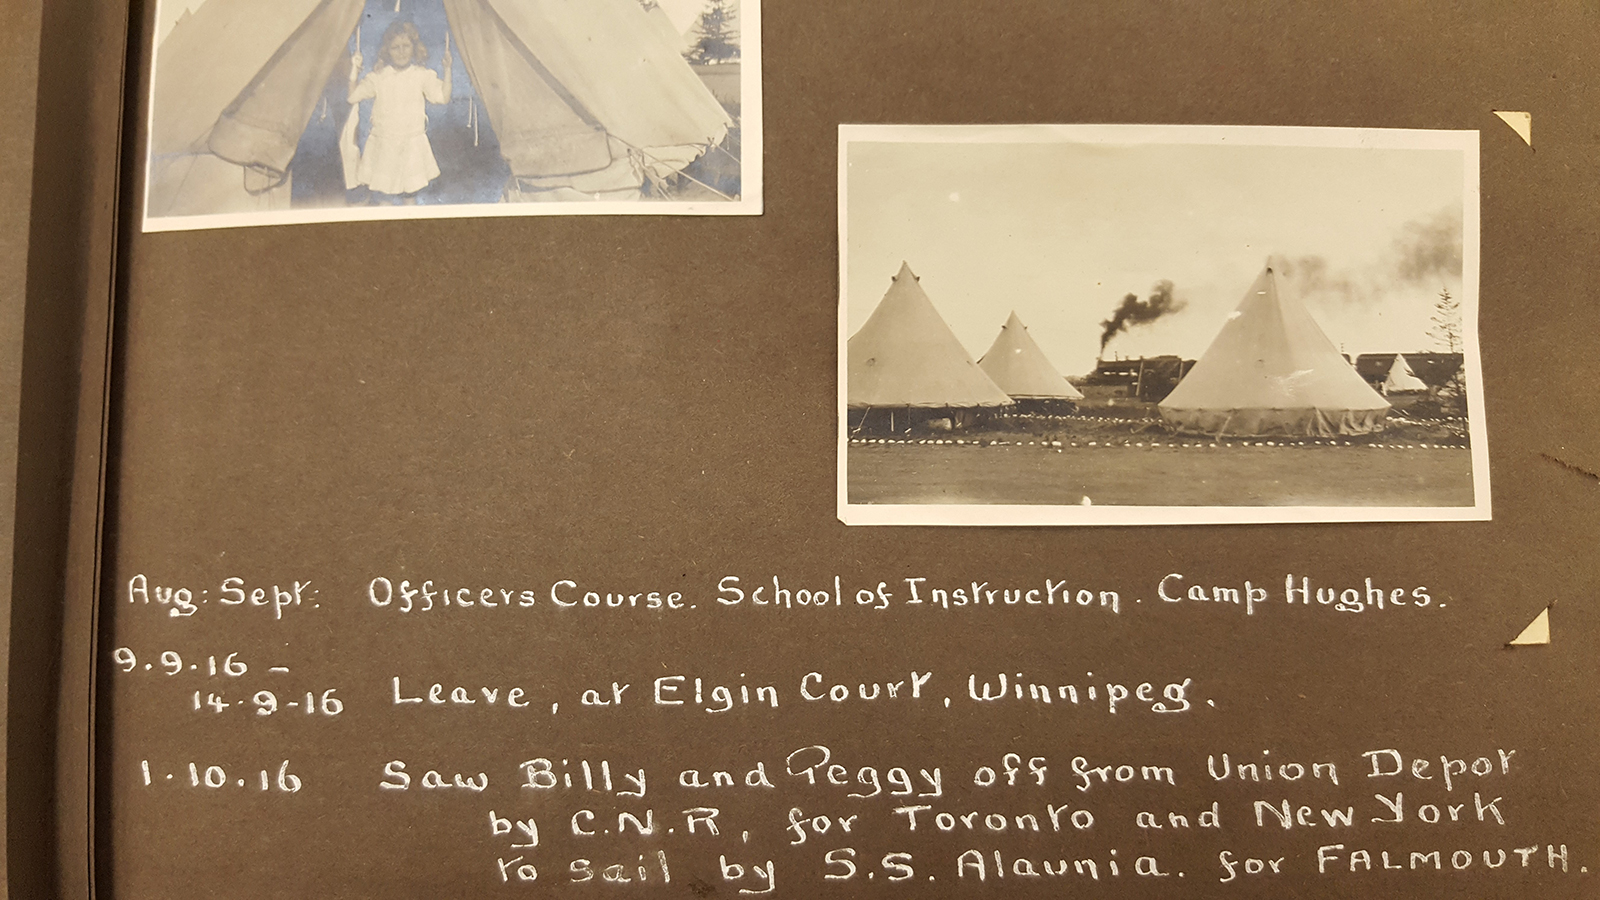 Aug: Sept: Officers Course. School of Instruction. Camp Hughes.
9.9.16 –
14.9-16 Leave, at Elgin Court, Winnipeg.
1.10.16 Saw Billy and Peggy off from Union Depot
by C.N.R, for Toronto and New York
to sail by S.S. Alaunia. for FALMOUTH.